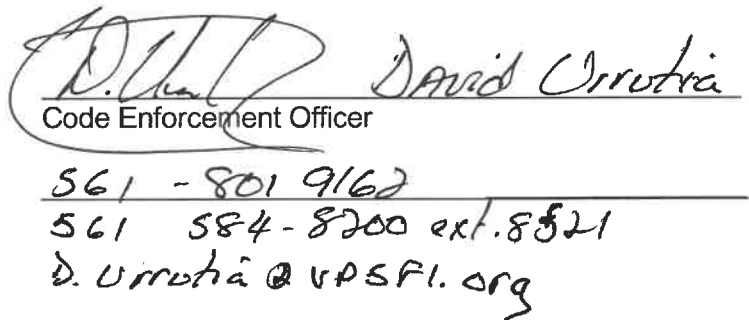 D. Urrutia David Urrutia
Code Enforcement Officer
561 - 801 9162
561 584-8200 ext. 8521
D. Urrutia @ VPSFl. org